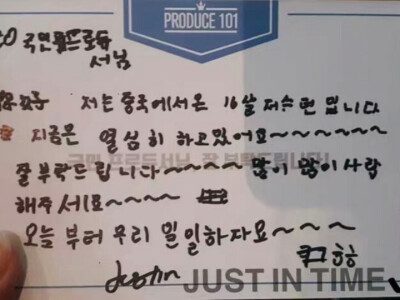 PRODUCE 101
TO 국민프로듀
서님
저는 중국에서온 16살 저스틴 입니다
지금은 열심히 하고있어요~~~~~~
잘 부탁드립니다~~~~ 많이 많이 사랑
국민 프로듀서님, 잘 부탁드립니다!
해주세요~~~~
오늘 부터 우리 밀일하자요~~~~
Justin JUST IN TIME